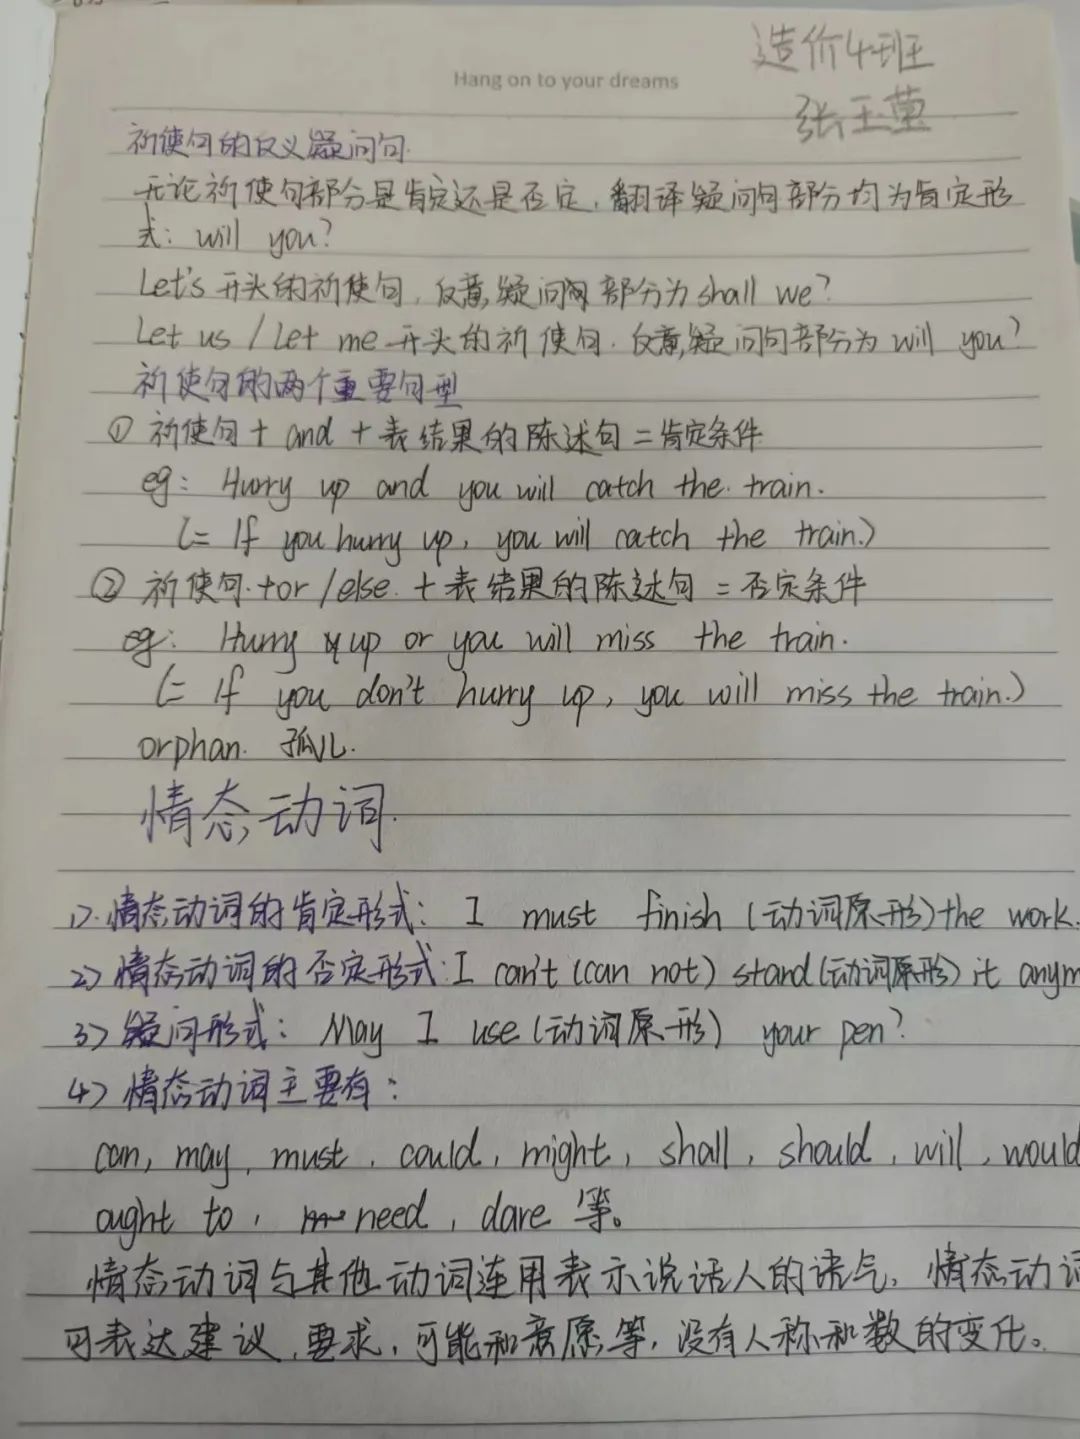 造价4班
Hang on to your dreams
张玉
祈使句的反义疑问句.
无论祈使句部分是肯定还是否定，翻译疑问句部分均为肯定形
式：will you?
Let's 开头的祈使句，反意疑问句部分为shall we?
Let us / Let me 开头的祈使句. 反意疑问句部分为 will you?
祈使句的两个重要句型
① 祈使句 + and + 表结果的陈述句 = 肯定条件
eg: Hurry up and you will catch the train.
(= If you hurry up, you will catch the train.)
② 祈使句 + or / else. + 表结果的陈述句 = 否定条件
eg: Hurry up or you will miss the train.
(= If you don't hurry up, you will miss the train.)
orphan. 孤儿.
情态动词.
1). 情态动词的肯定形式：I must finish (动词原形) the work.
2) 情态动词的否定形式：I can't (can not) stand (动词原形) it anym
3) 疑问形式：May I use (动词原形) your pen?
4) 情态动词主要有：
can, may, must, could, might, shall, should, will, would
ought to, need, dare 等。
情态动词与其他动词连用表示说话人的语气，情态动词
可表达建议、要求，可能和意愿等，没有人称和数的变化。